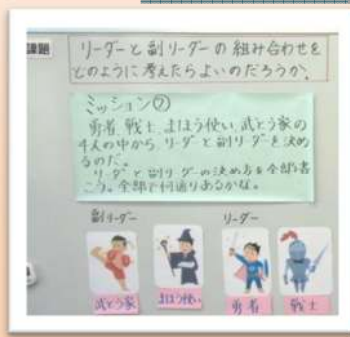 課題
リーダーと副リーダーの組み合わせを
どのように考えたらよいのだろうか。
ミッション②
勇者、戦士、まほう使い、武とう家の
4人の中から、リーダーと副リーダーを決め
るのだ。
リーダーと副リーダーの決め方を全部書
こう。全部で何通りあるかな。
副リーダー
リーダー
武とう家
まほう使い
勇者
戦士